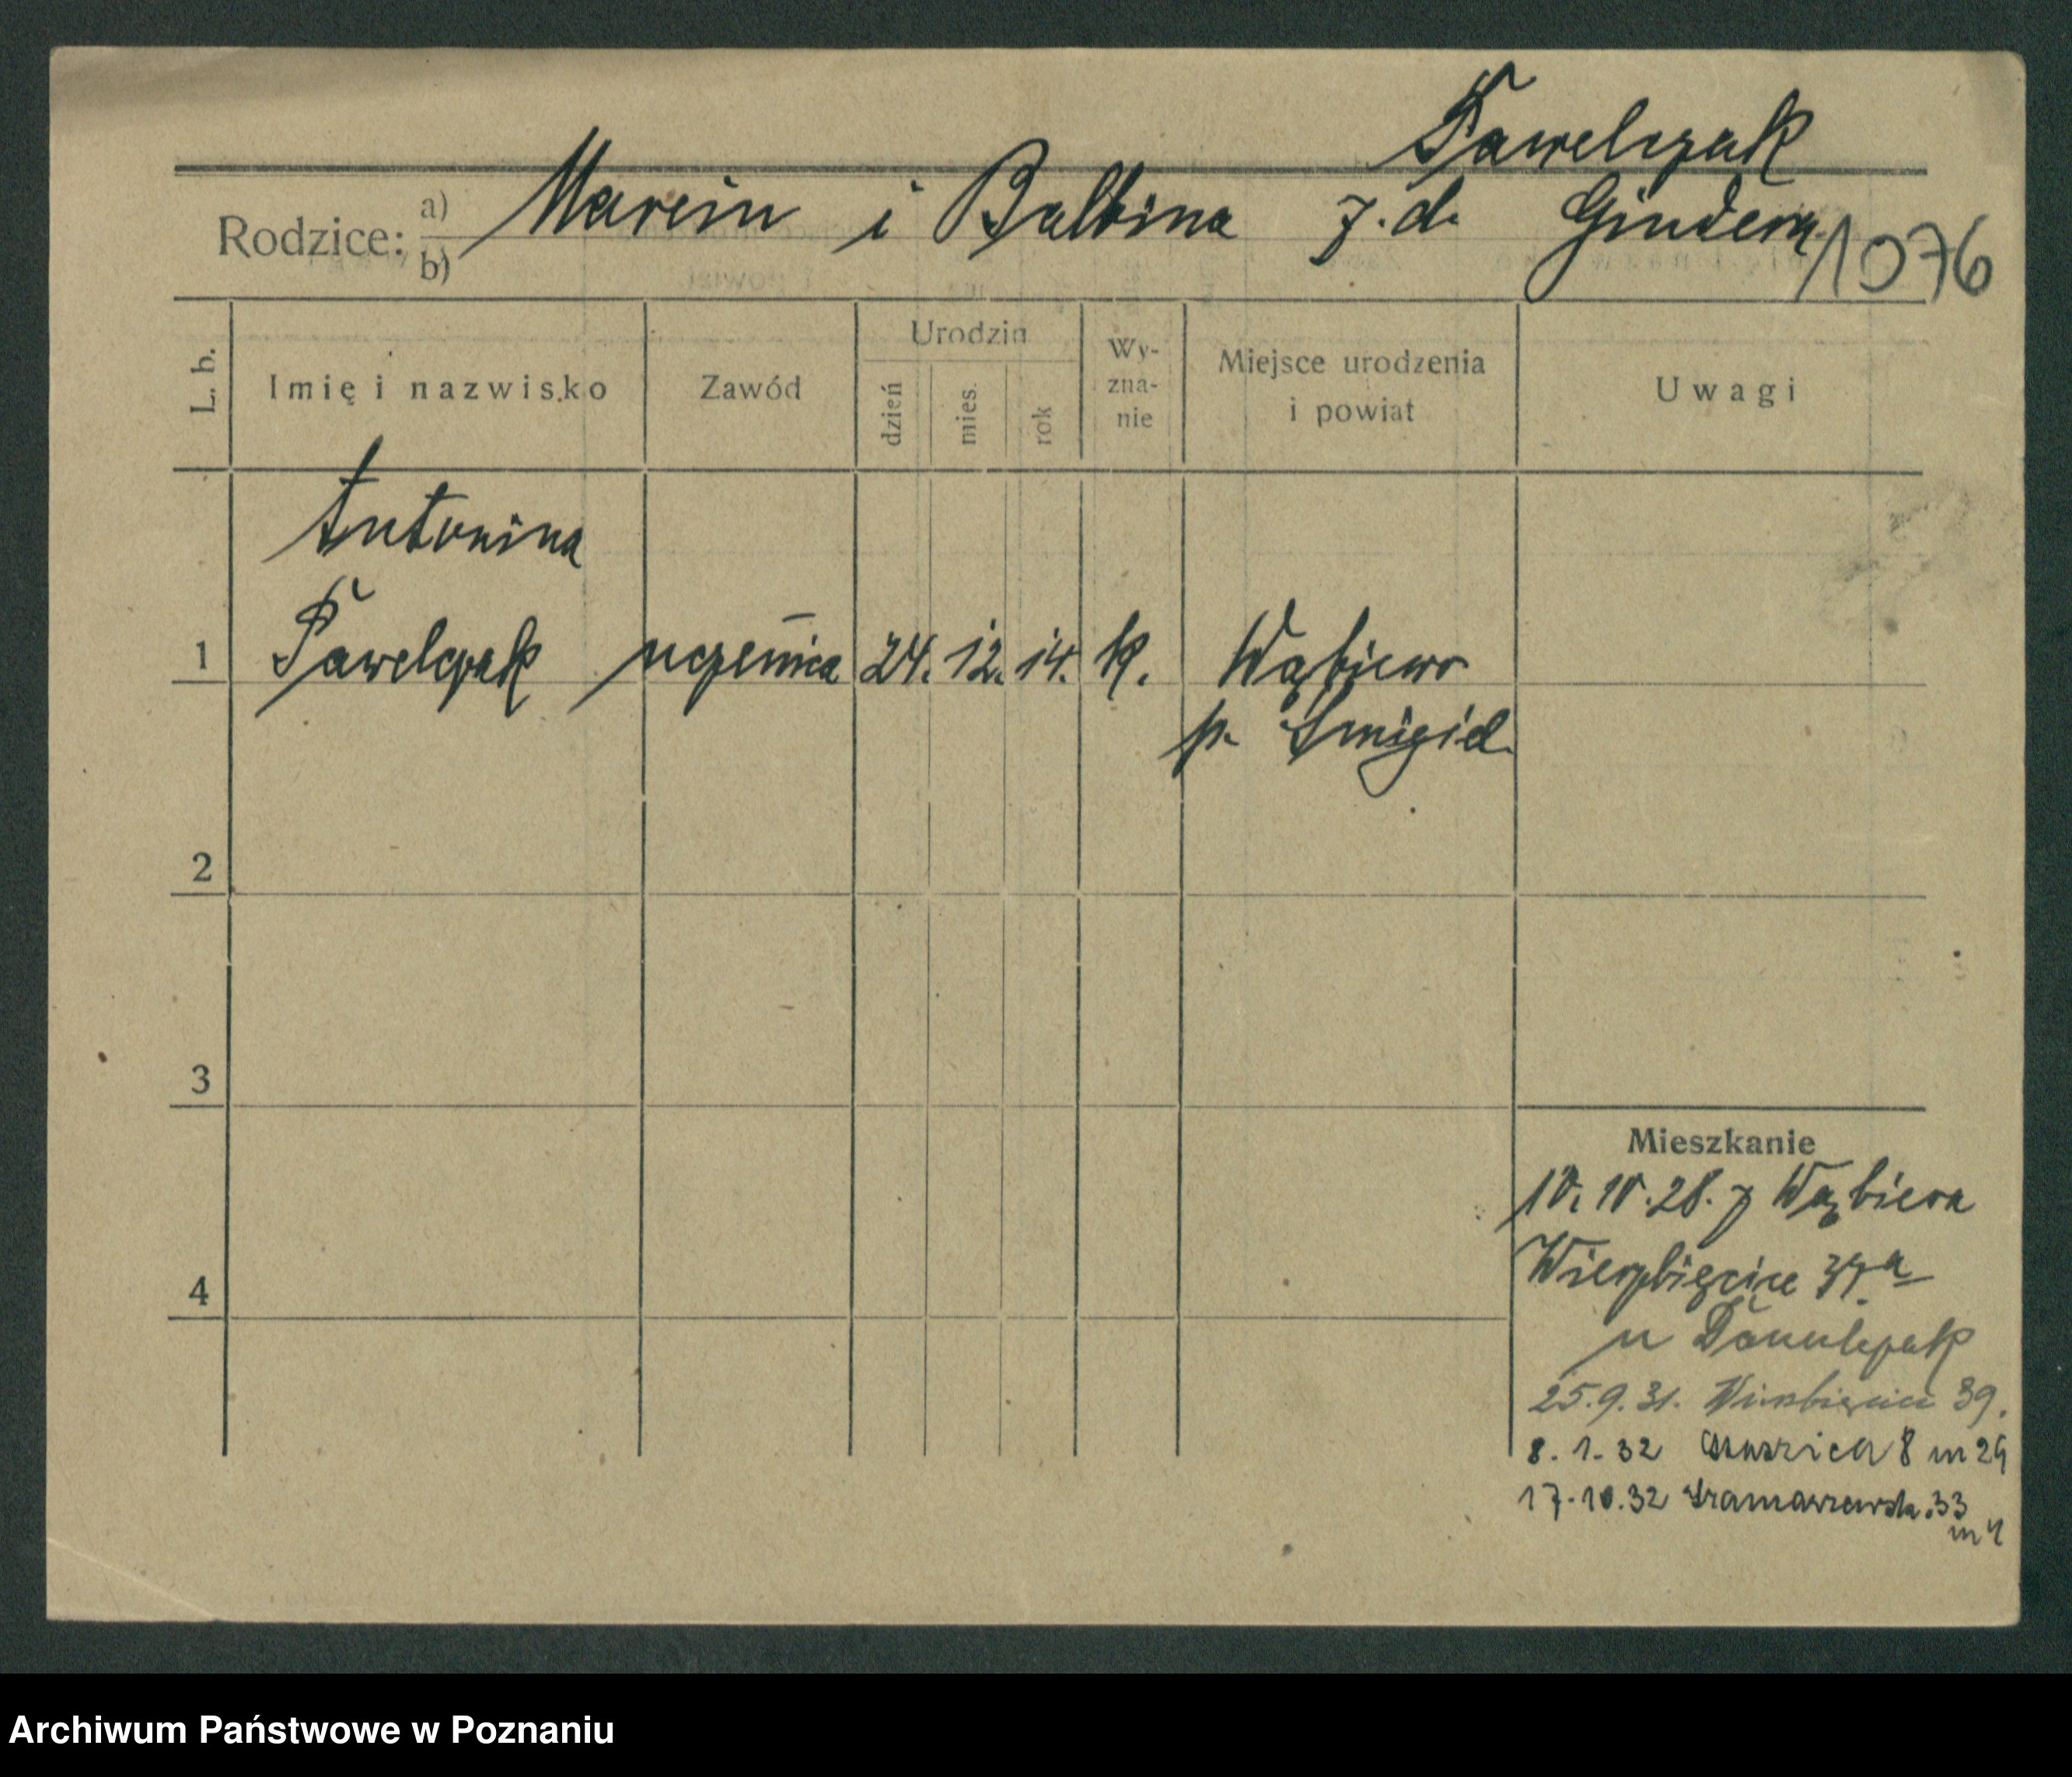 Pawelczak
Rodzice: a) Marcin i Balbina z. d. Gindera
b)
1076
L. b.
Imię i nazwisko
Zawód
Urodzin
dzień
mies.
rok
Wy-
zna-
nie
Miejsce urodzenia
i powiat
Uwagi
Antonina
1 Pawelczak uczennica 24. 12. 14. k. Wąbiewo
p. Śmigiel
2
3
4
Mieszkanie
10. 10. 28. z Wąbiewa
Wierzbięcice 37a
u
25.9.31. Wierzbięcice 39.
8. 1. 32 8 m 29
17. 10. 32 33
m 4
Archiwum Państwowe w Poznaniu